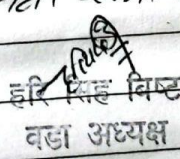 हरि सिंह विष्ट
वडा अध्यक्ष